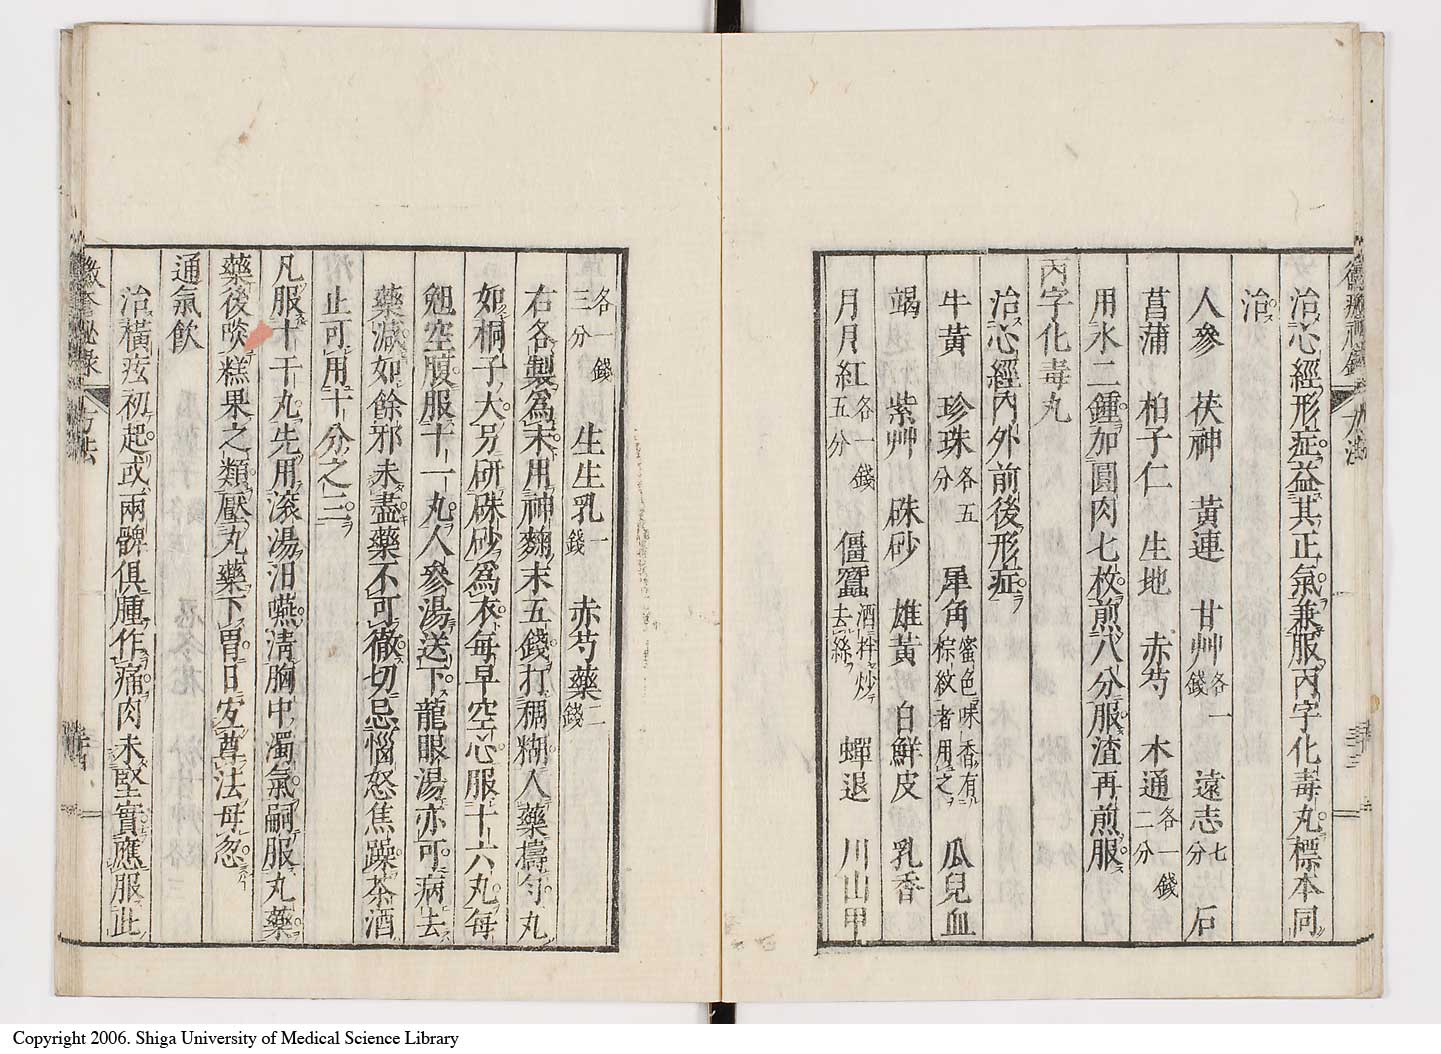 治心經形症益其正氣兼服丙字化毒丸標本同
治
人參 茯神 黃連 甘艸各一錢 遠志七分 石
菖蒲 柏子仁 生地 赤芍 木通各一錢二分
用水二鍾加圓肉七枚煎八分服渣再煎服
丙字化毒丸
治心經內外前後形症
牛黃 珍珠各五分 犀角蜜色味香有棕紋者用之 瓜兒血
竭 紫艸 硃砂 雄黃 白鮮皮 乳香
月月紅各一錢五分 僵蠶酒拌炒去絲 蟬退 川山甲
各一錢三分 生生乳一錢 赤芍藥二錢
右各製爲末用神麴末五錢打稠糊入藥擣勻丸
如桐子大另研硃砂爲衣每早空心服十六丸每
晚空腹服十一丸人參湯送下龍眼湯亦可病去
藥減如餘邪未盡藥不可徹切忌惱怒焦躁茶酒
止可用十分之三
凡服十干丸先用滚湯汨嚥淸胸中濁氣嗣服丸藥
藥後啖糕果之類壓丸藥下胃日安尊法毋忽
通氣飲
治橫痃初起或兩髀俱腫作痛肉未堅實應服此
黴瘡秘錄 方法
Copyright 2006. Shiga University of Medical Science Library